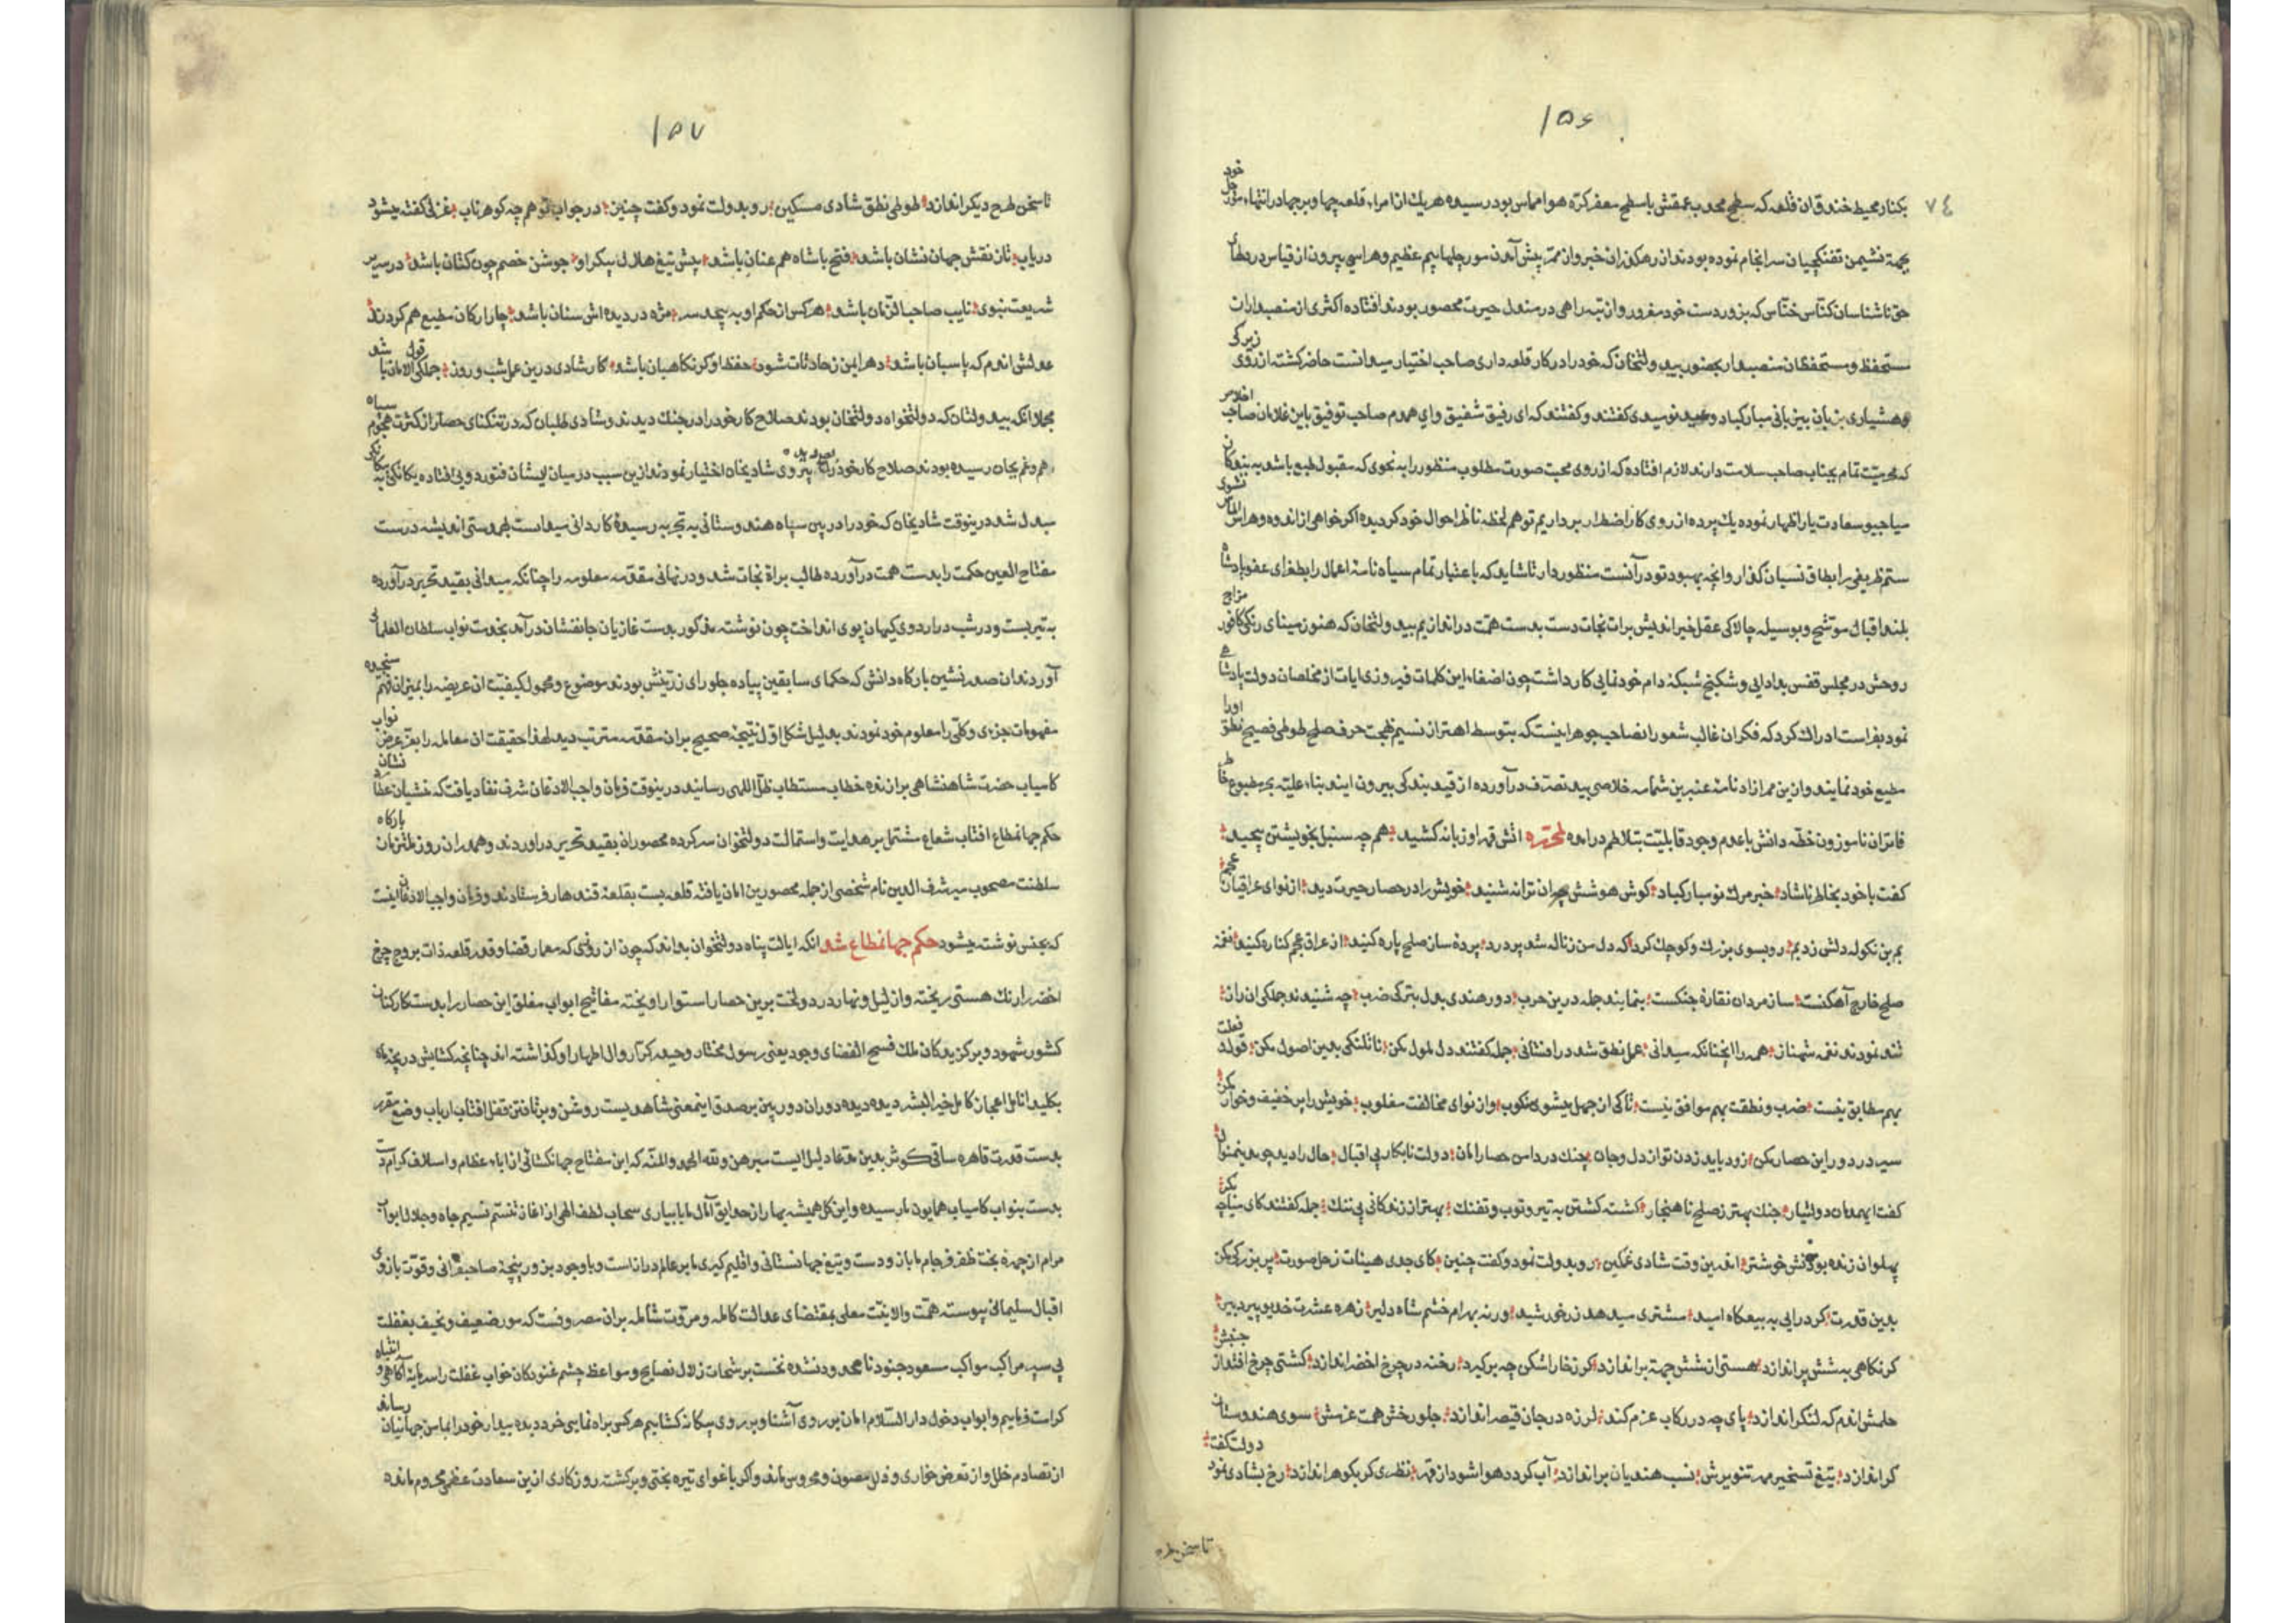 ١٥٦
٧٤
بکنار محیط خندق آن قلعه که سطح محدب عمقش با سطح مقعر کره هوا مماس بود رسیده هر یک از امراء قلعه چها و برجها در انتهاء سور جل خود
بجهة نشیمن تفنکچیان سرانجام نموده بودند از رهکذر این خبر و از ممر پیش آمدن سورجلها بیم عظیم و هراسی بیرون از قیاس در دلهای
حق ناشناسان کناس ختاس که بزور دست خود مغرور و از تیه راهی در مندل حیرت محصور بودند افتاده اکثری از منصبداران
مستحفظ و مستحفظان منصبدار بحضور بیدولتخان که خود را در کار قلعه داری صاحب اختیار میدانست حاضر کشته از روی زیرکی
و هشیاری بزبان بیزبانی مبارکباد و عید نومیدی کفتند و کفتند که ای رفیق شفیق و ای همدم صاحب توفیق باین غلامان صاحب اخلاص
که محبت تمام بجناب صاحب سلامت دارند لازم افتاده که از روی محبت صورت مطلوب منظور را به نحوی که مقبول طبع باشد به بندکان
میاجیو سعادت یار اظهار نموده یک پرده از روی کار اضطرار برداریم تو هم لحظه ناظر احوال خود کردیده اکر خواهی از اندوه و هراس
ستم ظریفی را بطاق نسیان کذار و آنچه بهبود تو در آنست منظور دار تا شاید که باعتبار تمام سیاه نامه اعمال را بطغرای عفو پادشاه
بلند اقبال موشح و بوسیله چالاکی عقل خیر اندیش برات نجات دست بدست همت در اندازیم بیدولتخان که هنوز مینای رنکی کافور مزاج
روحش در مجلس قفس بدادایی و شکنج شبکه دام خودنمایی کار داشت چون اصغاء این کلمات فیروزی ایات از مخلصان دولت پادشاهی
نمود بفراست ادراک کرد که فکر آن غالب شعور را نصاحب جوهر اینست که بتوسط اهتزاز نسیم بهجت حرف صلح طوطی فصیح نطق او را
مطیع خود نمایند و از ین ممر ازاد نامه عنبرین شمامه خلاصی بید تصرف درآورده از قید بندکی بیرون ایند بناء علیه بحر مطبوع خاطر
فاتران ناموزون خطه دانش باعدم وجود قابلیت بتلاطم درامده لمحرره اتش قهر او زبانه کشید هم چه سنبل بخویشتن پیچید
کفت با خود بخاطر ناشاد خبر مرک نو مبارکباد کوش هوشش چو ان ترانه شنید خویش را در حصار حیرت دید از نوای عراقیان عجم
بم بزنکوله دلش زد بم رو بسوی بزرک و کوچک کرد که دل من ز ناله شد پر درد پرده ساز صلح پاره کنید از عراق عجم کناره کنید نغمه
صلح خارج آهنکست ساز مردان نقاره جنکست بنمایند جمله در ین حرب دور هندی بدل بترکی ضرب چه شنیدند جملکی ان راز
تند نمودند نغمه شهناز همه را آنچنانکه میدانی عمل نطق شد در افشانی جمله کفتند دل ملول مکن نا تلنکی بدین اصول مکن قولت فعلت
بهم مطابق نیست ضرب و نطقت بهم موافق نیست تا کی از جهل میشوی منکوب و از نوای مخالفت مغلوب خویش را پر خفیف و خوار مکن
سیر در دور این حصار مکن زود باید زدن نوا از دل و جان چنک در دامن حصار امان دولت نابکار بی اقبال حال را دید چو بدینمنوال
کفت ایهمدمان دولتیار جنک بهتر ز صلح ناهنجار کشته کشتن به تیر و توپ و تفنک بهتر از زندکانی پر ننک جمله کفتند کای
پهلوان زنده بود خوشتر اندرین وقت شادی غمکین رو بدولت نمود و کفت چنین کای جدی هیئات زحل صورت پر بزرکی مکن
بدین قدرت کر درایی به بیعکاه امید مشتری میدهد زر خورشید ور نه بهرام خشم شاه دلیر زهره عشرت خدیو پیر دبیر
کر نکاهی بشش پر اندازد هستی از شش جهة بر اندازد کرز خارا شکن چه بر کیرد رخنه در چرخ اخضر اندازد کشتی چرخ افتد از جنبش
حلمش اندم که لنکر اندازد پای چه در رکاب عزم کند لرزه در جان قیصر اندازد جلو رخش همت عزمش سوی هندوستان
کر اندازد تیغ تسخیر مهر تنویرش نسب هندیان بر اندازد آب کردد هوا شود از قهر نظری کر بکوهر اندازد رخ بشادی نمود دولت کفت
تا سخن طرح
١٥٧
تا سخن طرح دیکر اندازد طوطی نطق شادی مسکین رو بدولت نمود و کفت چنین در جواب تو هم چه کوهر ناب غزلی کفته میشود
دریاب تا نقش جهان نشان باشد فتح با شاه هم عنان باشد پیش تیغ هلال پیکر او جوشن خصم چون کتان باشد در سریر
شریعت نبوی نایب صاحب الزمان باشد هر کس از حکم او به پیچد سر مژه در دیده اش سنان باشد چار ارکان مطیع هم کردند
عدلش اندم که پاسبان باشد دهر ایمن ز حادثات شود حفظ او کر نکاهبان باشد کار شادی درین عمل شب و روز جملکی الامان باشد قول
مجملا انکه بیدولتان که دولتخواه دولتخان بودند صلاح کار خود را در جنک دیدند و شادی طلبان که در تنکنای حصار از کثرت هجوم سپاه
هم و غم بجان رسیده بودند صلاح کار خود را در پیروی شادیخان اختیار نمودند ازین سبب در میان ایشان فتور دویی افتاده یکانکی به
مبدل شد درینوقت شادیخان که خود را در بین سپاه هندوستانی به تجربه رسیدهٔ کاردانی میدانست بهمدستی اندیشه درست
مفتاح العین حکمت را بدست همت درآورده طالب براة نجات شد و در نهانی مقدمه معلومه را چنانکه میدانی بقید تحریر درآورده
به تیر بست و در شب در اردوی کیهان پوی انداخت چون نوشته مذکور بدست غازیان جانفشان درآمد بخدمت نواب سلطان العلمائی
آوردند ان صدر نشین بارکاه دانش که حکمای سابقین پیاده جلو رای زرینش بودند موضوع و محمول کیفیت ان عریضه را بمیزان فهم سنجیده
مفهومات جزءی و کلی را معلوم خود نمودند بدلیل شکل اول نتیجه صحیح بر ان مقدمه مترتب دید لهذا حقیقت ان معامله را بعز عرض نواب
کامیاب حضرت شاهنشاهی برازنده خطاب مستطاب ظل اللهی رسانید درینوقت فرمان واجب الاذعان شرف نفاد یافت که منشیان عطارد نشان
حکم جهانمطاع افتاب شعاع مشتمل بر هدایت و استمالت دولتخوان سرکرده محصوران بقید تحریر دراوردند و همدران روز ملتزمان بارکاه
سلطنت مصحوب میر شرف الدین نام شخصی از جمله محصورین امان یافته قلعه بست بقلعهٔ قندهار فرستادند و فرمان واجب الاذعان اینست
که بجنس نوشته میشود حکم جهانمطاع شد انکه ایالت پناه دولتخوان بداند که چون از روزی که معمار قضا و قدر قلعه ذات بروج چرخ
اخضر را رنک هستی ریخته و از لیل و نهار در دولخت برین حصار استوار اویخته مفاتیح ابواب مغلق این حصار را بدست کارکنان
کشور شهود و برکزیدکان ملک فسیح الفضای وجود یعنی رسول مختار و حیدر کرار و ال اطهار او کذاشته اند چنانچه کشایش دریچه ماه
بکلید انامل اعجاز کامل خیر البشر دیده دیده دوران دوربین بر صدق اینمعنی شاهدیست روشن و بر تافتن قفل افتاب ارباب وضع مقرر
بدست قدرت قاهره ساقی کوثر بدین مدعا دلیلیست مبرهن و لله الحمد و المنه که این مفتاح جهانکشائی از اباء عظام و اسلاف کرام دست
بدست بنواب کامیاب همایون ما رسیده و این کل همیشه بهار از حدایق آمال ما بابیاری سحاب لطف الهی از اغاز تنسم نسیم جاه و جلال ابواب
مرام از چهره بخت ظفر فرجام ما باز و دست و تیغ جهانستانی و اقلیم کیری ما بر عالم دراز است و با وجود زور پنجه صاحبقرانی و قوت بازوی
اقبال سلیمانی پیوسته همت والا نهمت معلی بمقتضای عدالت کامله و مروت شامله بر ان مصروفست که مور ضعیف و نحیف بغفلت
پی سپر مراکب مواکب مسعود جنود نامعدود نشده نخست برشحات زلال نصایح و مواعظ چشم غنودکان خواب غفلت را سرمایهٔ آکاهی و انتباه
کرامت فرماییم و ابواب دخول دار السلام امان بر روی آشنا و بر روی بیکانه کشاییم هر کس براه نمایی خرد دیده بیدار خود را بمامن جهانیان رساند
از تصادم خلل و از تعرض خواری و ذلل مصون و محروس ماند و اکر باغوای تیره بختی و برکشته روزکاری ازین سعادت عظمی محروم ماند